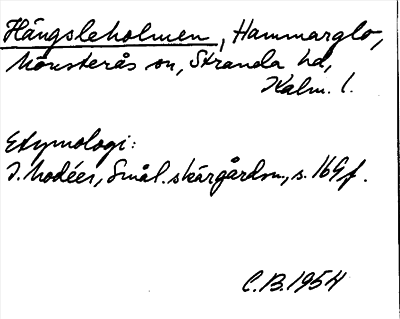 Hängsleholmen, Hammarglo,
Mönsterås sn, Stranda hd,
Kalm. l.
Etymologi:
I. Modéer, Smål. skärgårdsn., s. 169f.
C.B. 1954